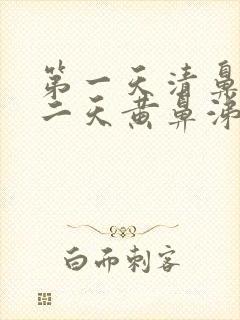 第一天清鼻
二天黄鼻涕
白而刺客